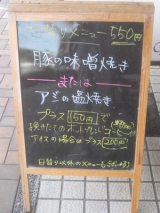 日替りメニュー 550円
豚の味噌焼き
または
アジの塩焼き
プラス150円で
挽きたてのオートドリップコーヒー
アイスの場合はプラス200円
日替り以外のメニューもございます